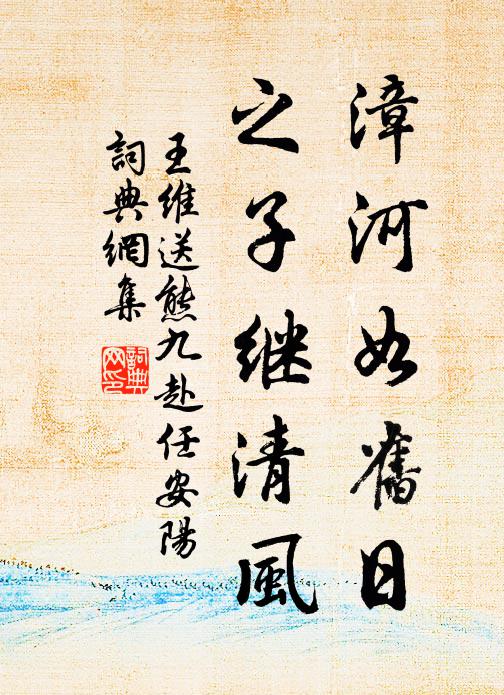 漳河如舊日
之子继清風
王维送熊九赴任安陽
詞典網集
詞典網印